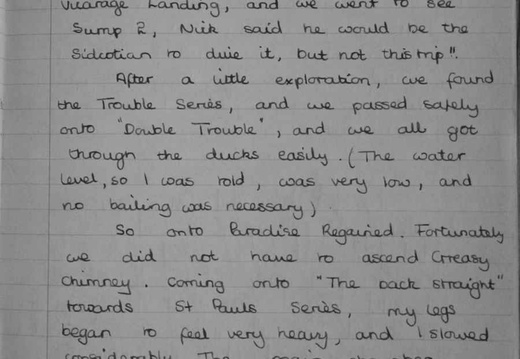 Vicarage Landing, and we went to see
Sump 2, Nick said he would be the
Sidcotian to dive it, but not this trip".
After a little exploration, we found
the Trouble Series, and we passed safely
onto "Double Trouble", and we all got
through the ducks easily. (The water
level, so I was told, was very low, and
no bailing was necessary)
So onto Paradise Regained. Fortunately
we did not have to ascend Greasy
Chimney. Coming onto "The back straight"
towards St Pauls Series, my legs
began to feel very heavy, and I slowed
considerably. The